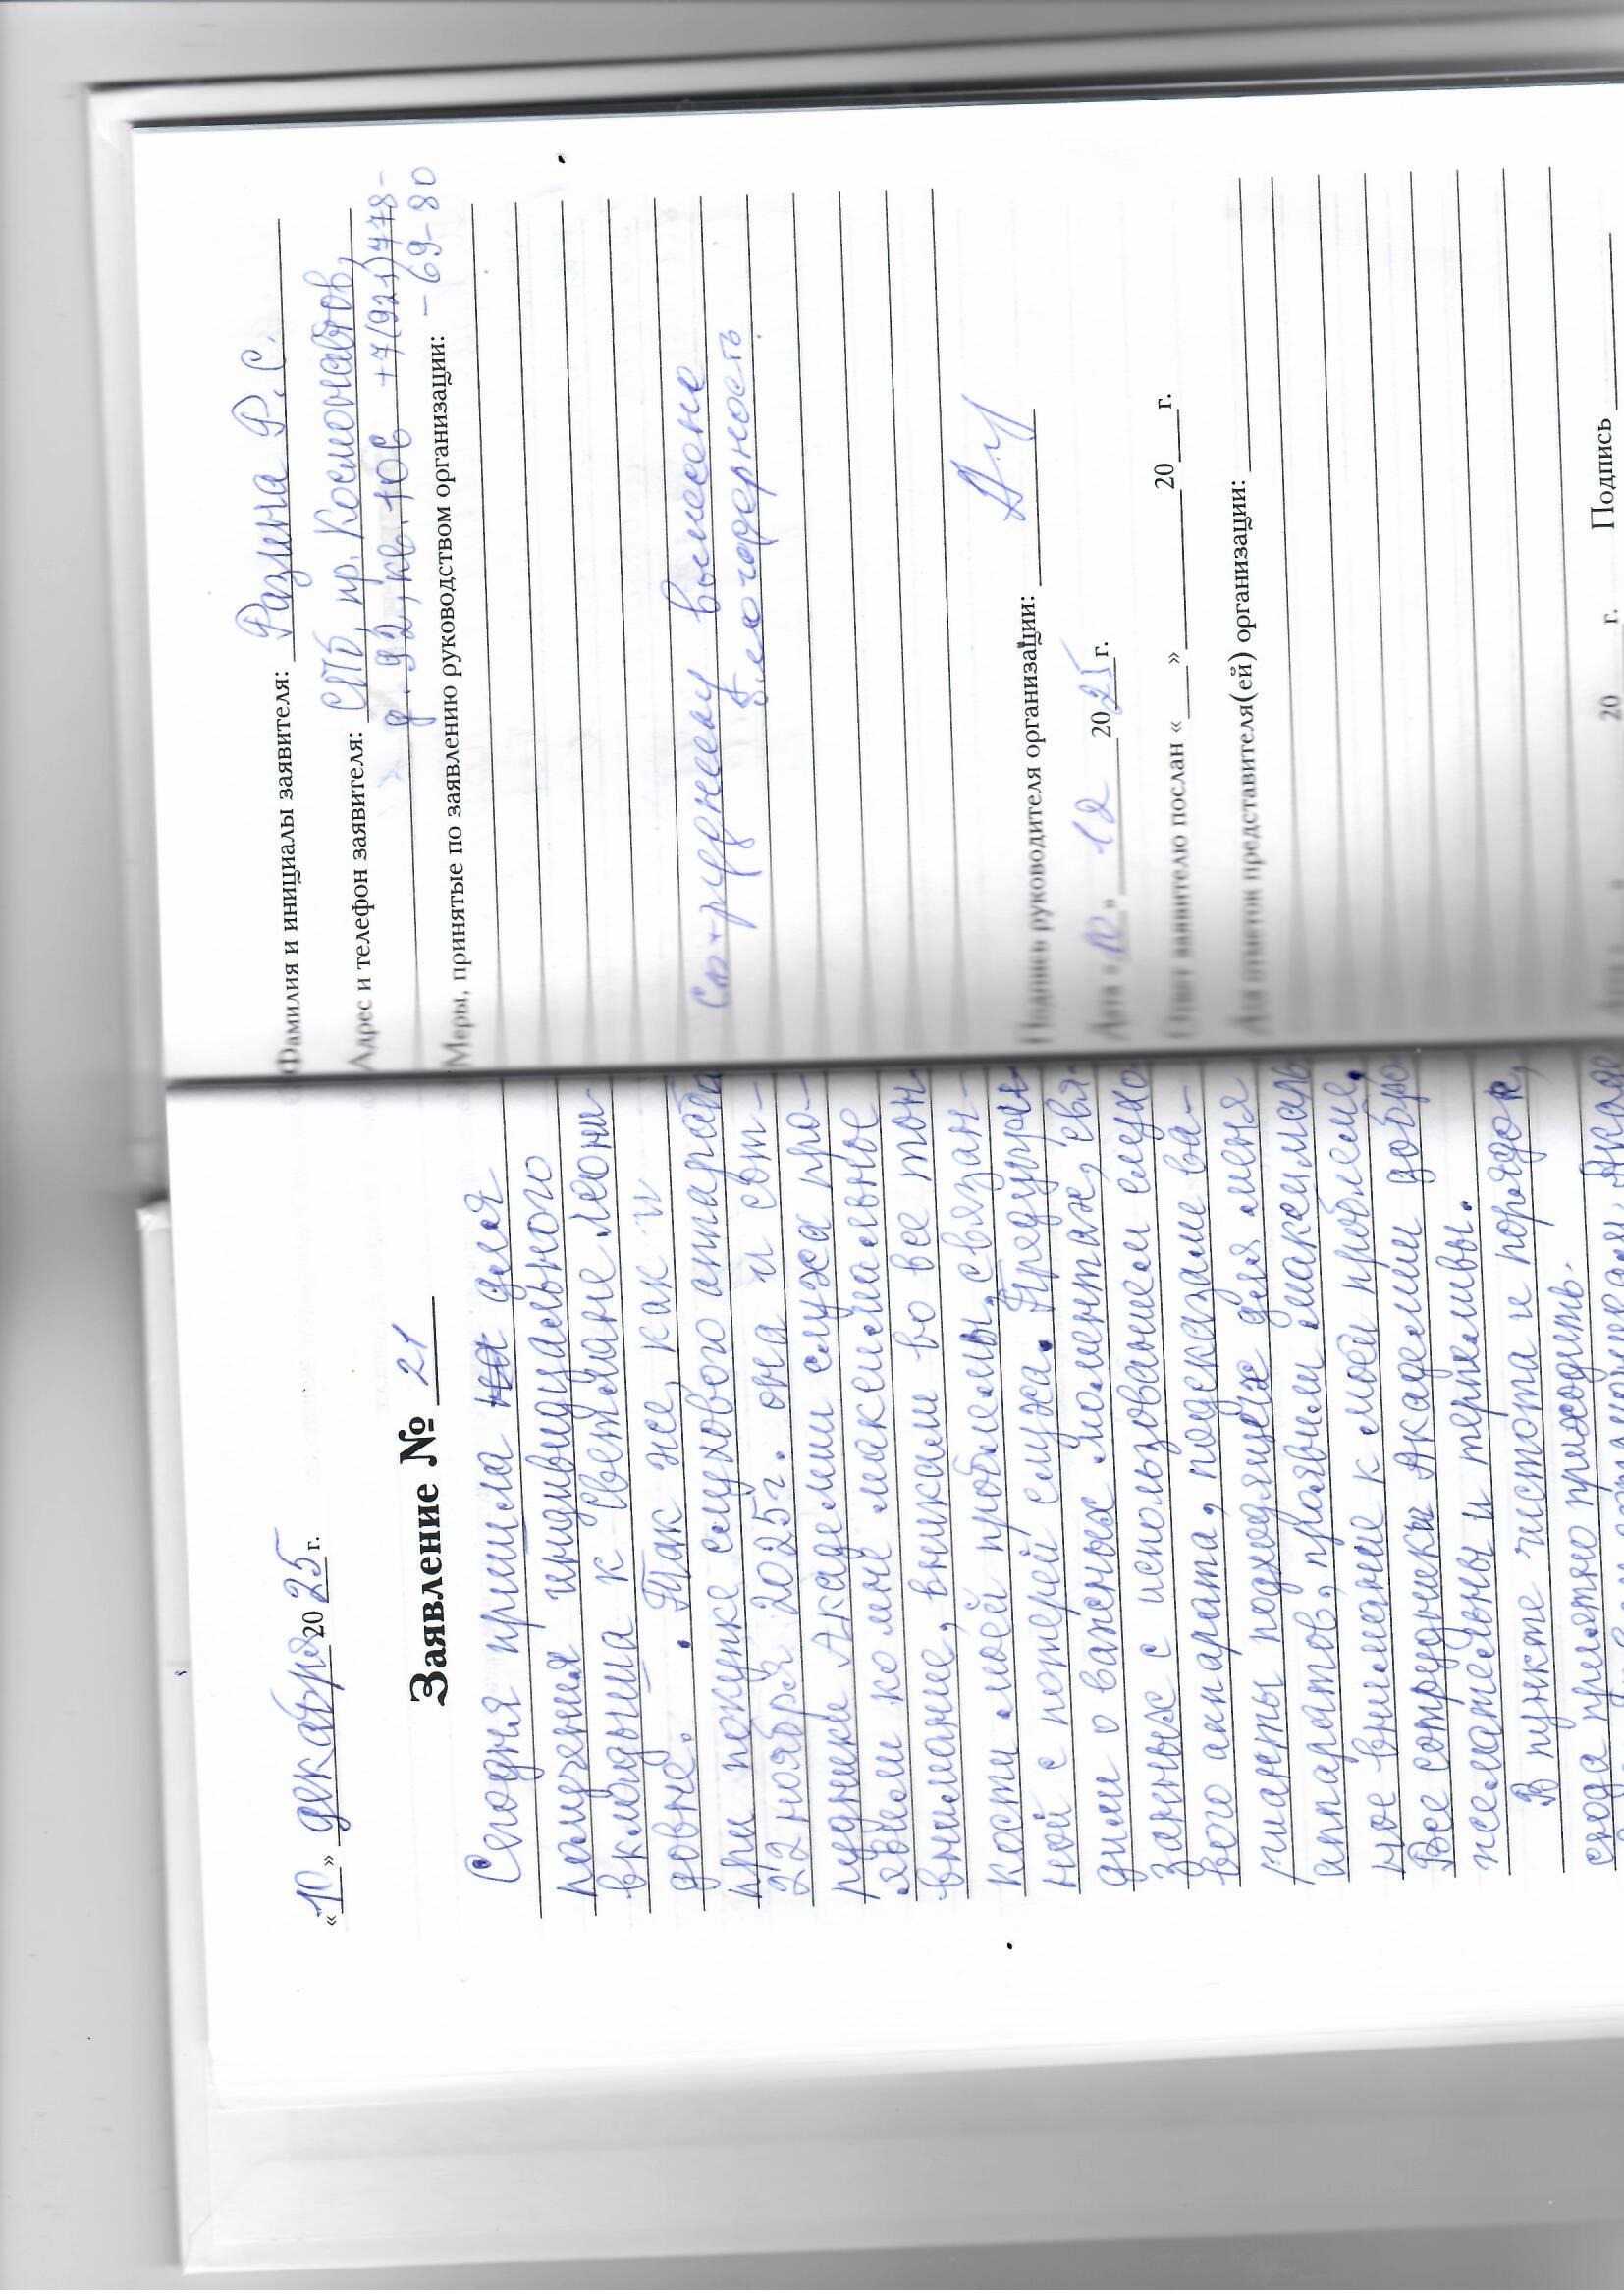 «10» декабря 2025 г.
Заявление № 21
Сегодня пришла на для
получения индивидуального
вкладыша к Светлане Леони-
довне. Так же, как и
при покупке слухового аппарата
22 ноября 2025 г. она и сот-
рудники Академии слуха про-
явили ко мне максимальное
внимание, вникали во все тон-
кости моей проблемы, связан-
ной с потерей слуха. Предупре-
дили о важных моментах, свя-
занных с использованием слухо-
вого аппарата, подсказали ва-
рианты подходящих для меня
аппаратов, проявили максималь-
ное внимание к моей проблеме.
Все сотрудники Академии добро-
желательны и терпеливы.
В пункте чистота и порядок,
сюда приятно приходить.
Фамилия и инициалы заявителя: Разина Р. С.
Адрес и телефон заявителя: СПб, пр. Космонавтов,
д. 92, кв. 106 +7(921)778-
-69-80
Меры, принятые по заявлению руководством организации:
Сотруднику вынесене
благодарность
Подпись руководителя организации:
Дата «10» 12 2025 г.
Ответ заявителю послан «___» ______ 20___ г.
Для отметок представителя(ей) организации:
20___ г. Подпись